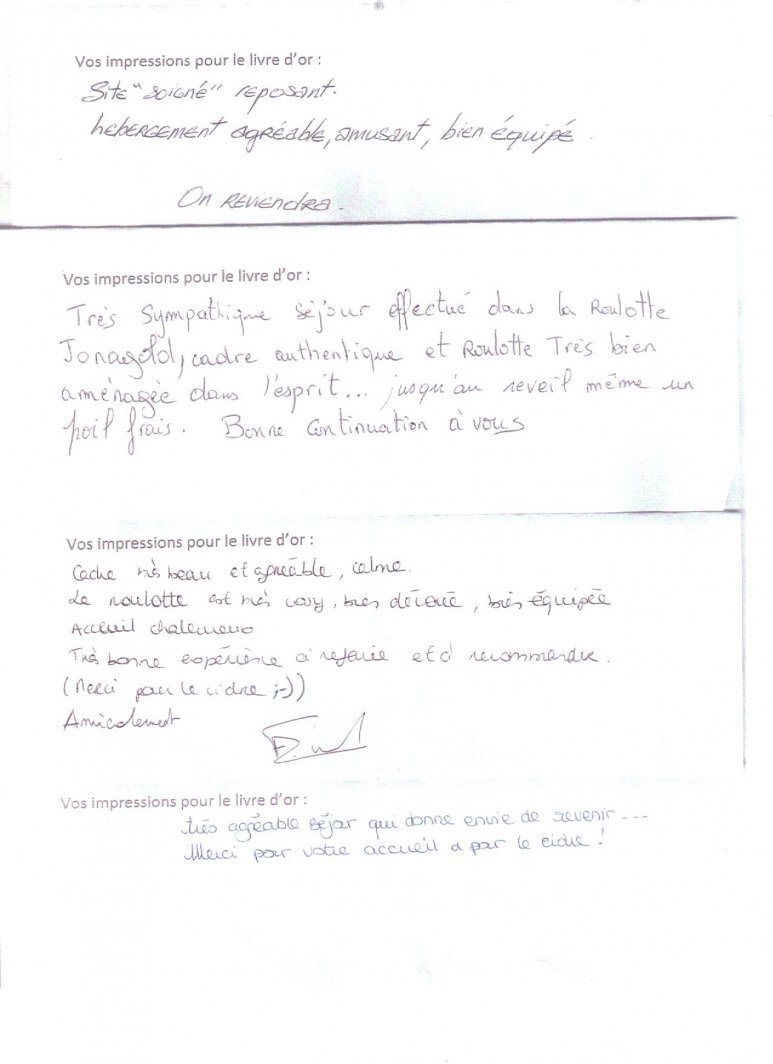 Vos impressions pour le livre d'or :
Site "soigné" reposant.
hébergement agréable, amusant, bien équipé.
On reviendra.
Vos impressions pour le livre d'or :
Très Sympathique séjour effectué dans la Roulotte
Jonagold, cadre authentique et Roulotte Très bien
aménagée dans l'esprit... jusqu'au reveil même un
poil frais. Bonne Continuation à vous
Vos impressions pour le livre d'or :
Cadre très beau et agréable, calme.
La roulotte est très cosy, très décorée, très équipée
Accueil chaleureux
Très bonne expérience à refaire et à recommander.
(Merci pour le cidre ;-))
Amicalement
Vos impressions pour le livre d'or :
très agréable séjour qui donne envie de revenir ---
Merci pour votre accueil & par le cidre !